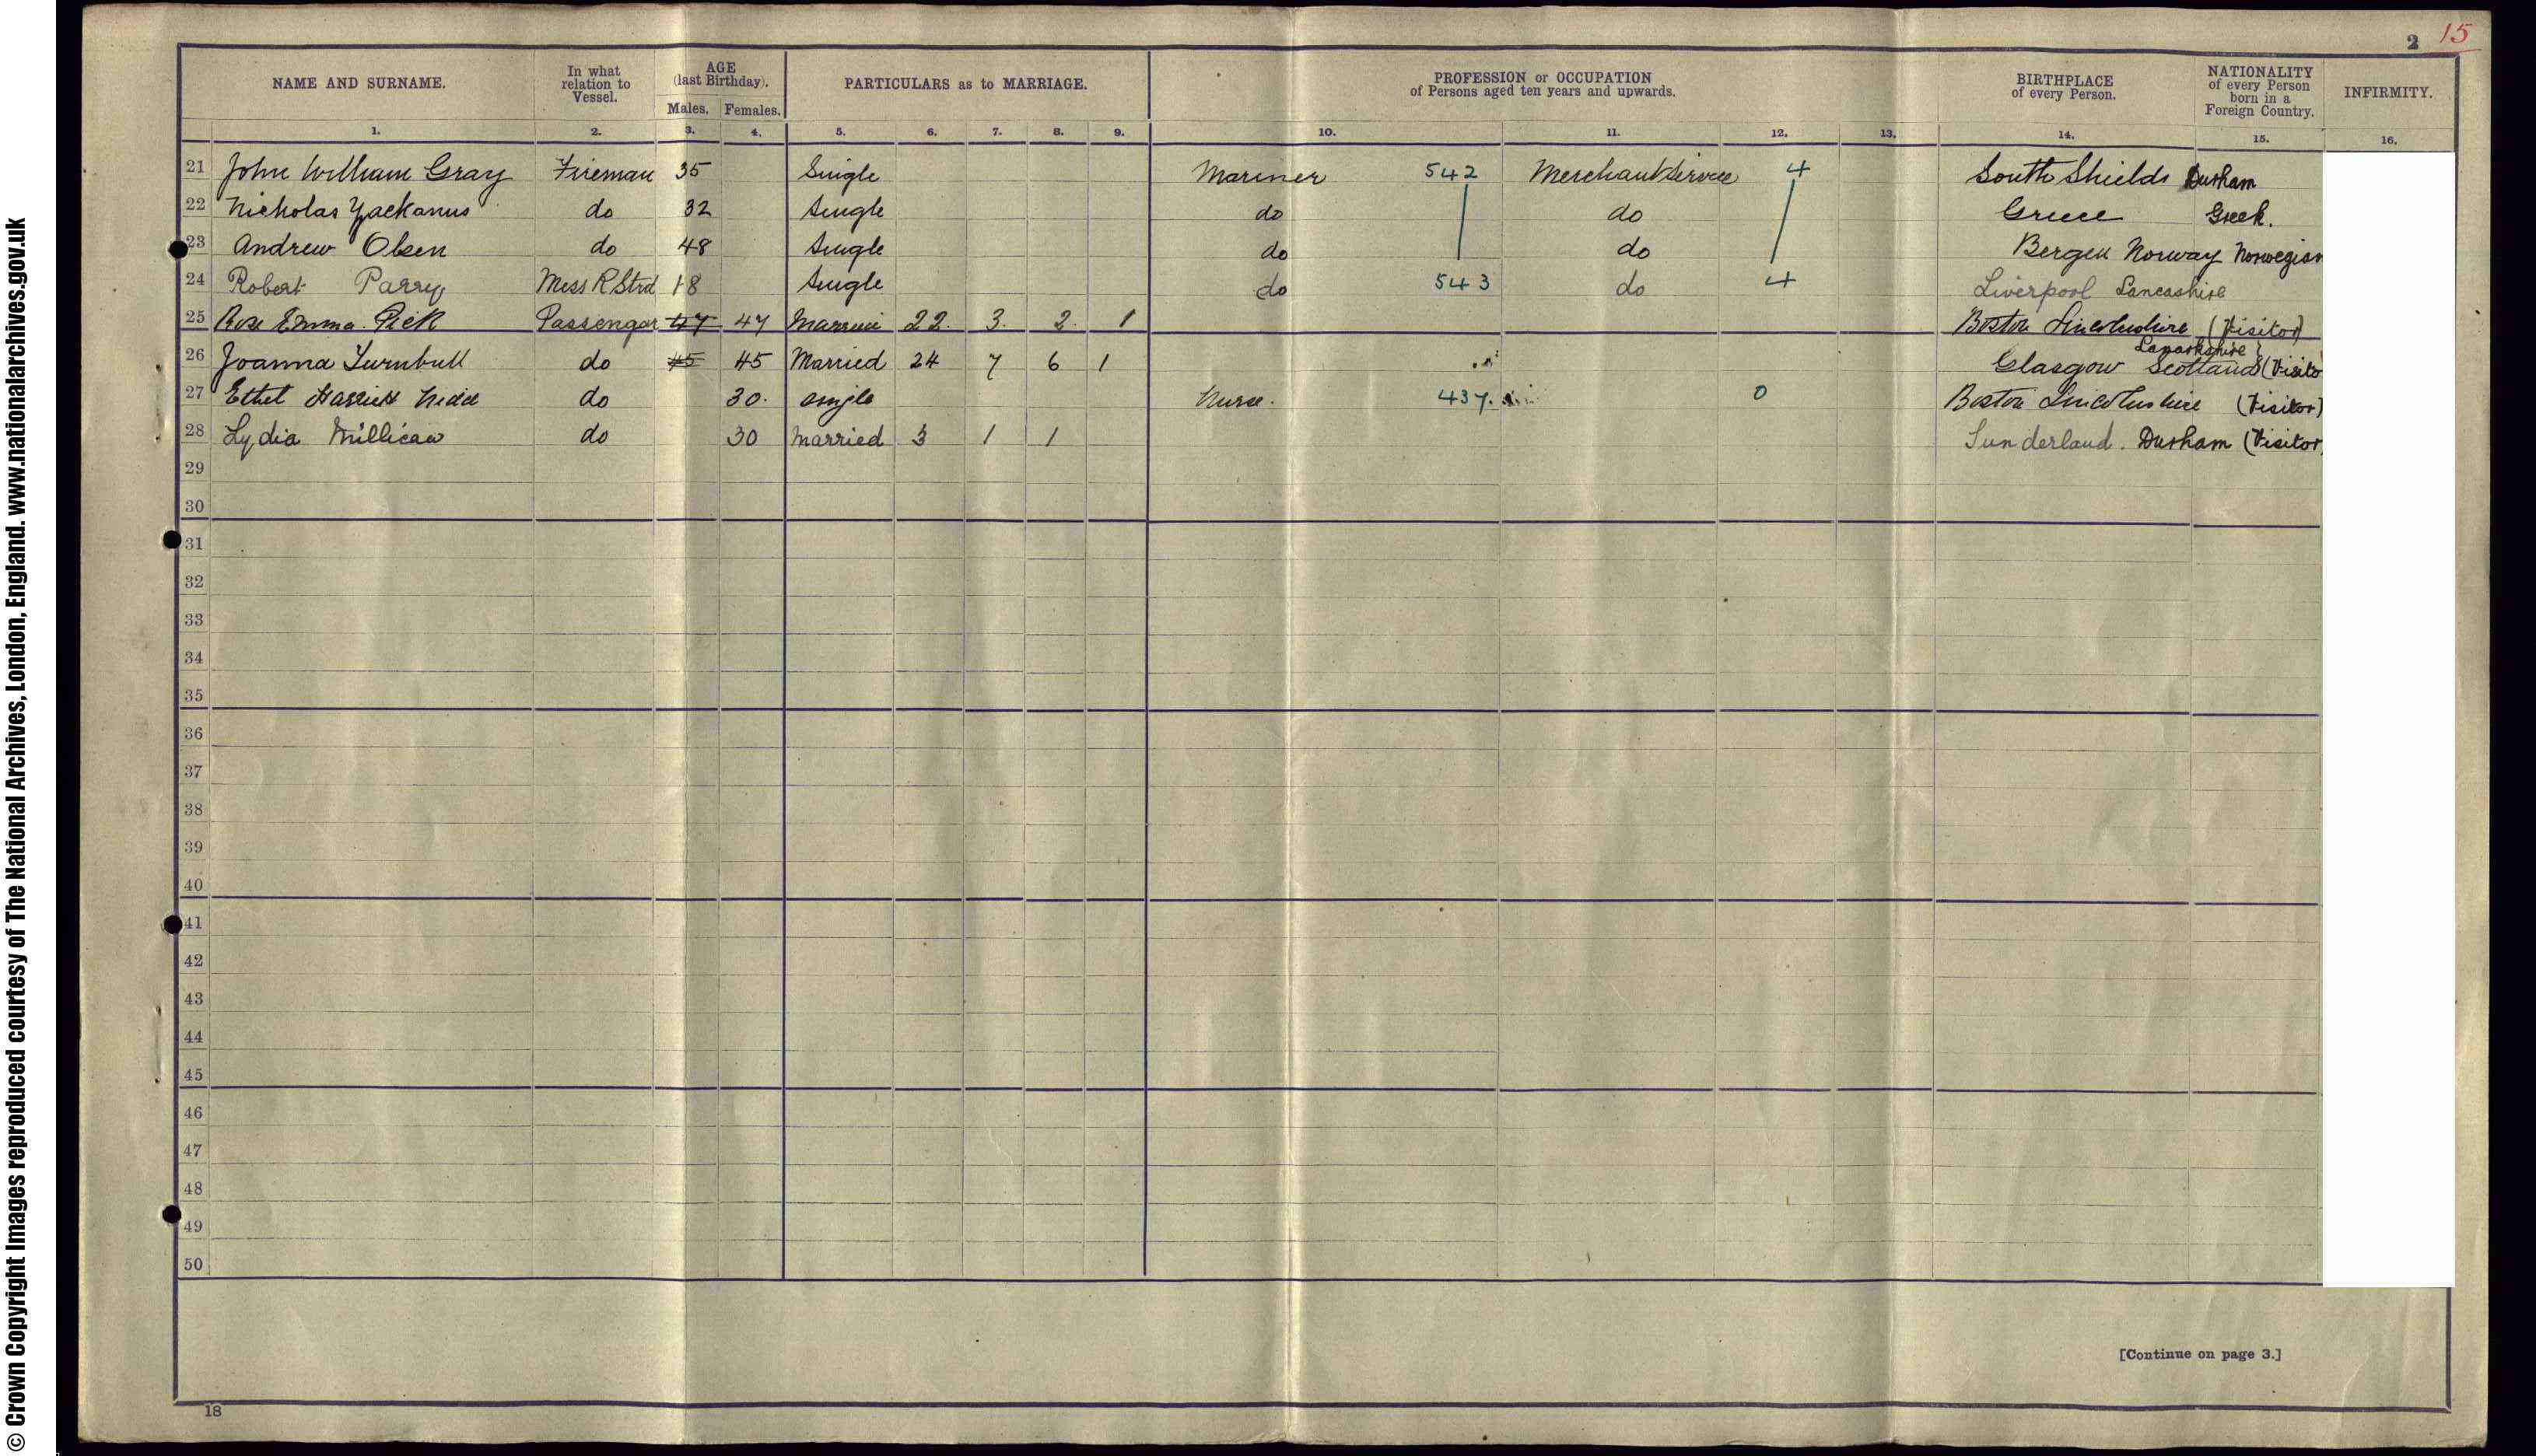 2 15
NAME AND SURNAME. In what relation to Vessel. AGE (last Birthday). Males. Females. PARTICULARS as to MARRIAGE. PROFESSION or OCCUPATION of Persons aged ten years and upwards. BIRTHPLACE of every Person. NATIONALITY of every Person born in a Foreign Country. INFIRMITY.
1. 2. 3. 4. 5. 6. 7. 8. 9. 10. 11. 12. 13. 14. 15. 16.
21 John William Gray Fireman 35 Single Mariner 542 Merchant Service 4 South Shields Durham
22 Nicholas Yackanus do 32 Single do do Greece Greek.
23 Andrew Olsen do 48 Single do do Bergen Norway Norwegian
24 Robert Parry Mess R Strd 18 Single do 543 do 4 Liverpool Lancashire
25 Rose Emma Pick Passenger 47 47 Married 22. 3. 2. 1 Boston Lincolnshire (Visitor)
Lanarkshire
26 Joanna Turnbull do 45 45 Married 24 7 6 1 Glasgow Scotland (Visito
27 Ethel Harriett do 30. single Nurse. 437. 0 Boston Lincolnshire (Visitor)
28 Lydia Millican do 30 Married 3 1 1 Sunderland. Durham (Visitor
29
30
31
32
33
34
35
36
37
38
39
40
41
42
43
44
45
46
47
48
49
50
[Continue on page 3.]
18
© Crown Copyright Images reproduced courtesy of The National Archives, London, England. www.nationalarchives.gov.uk